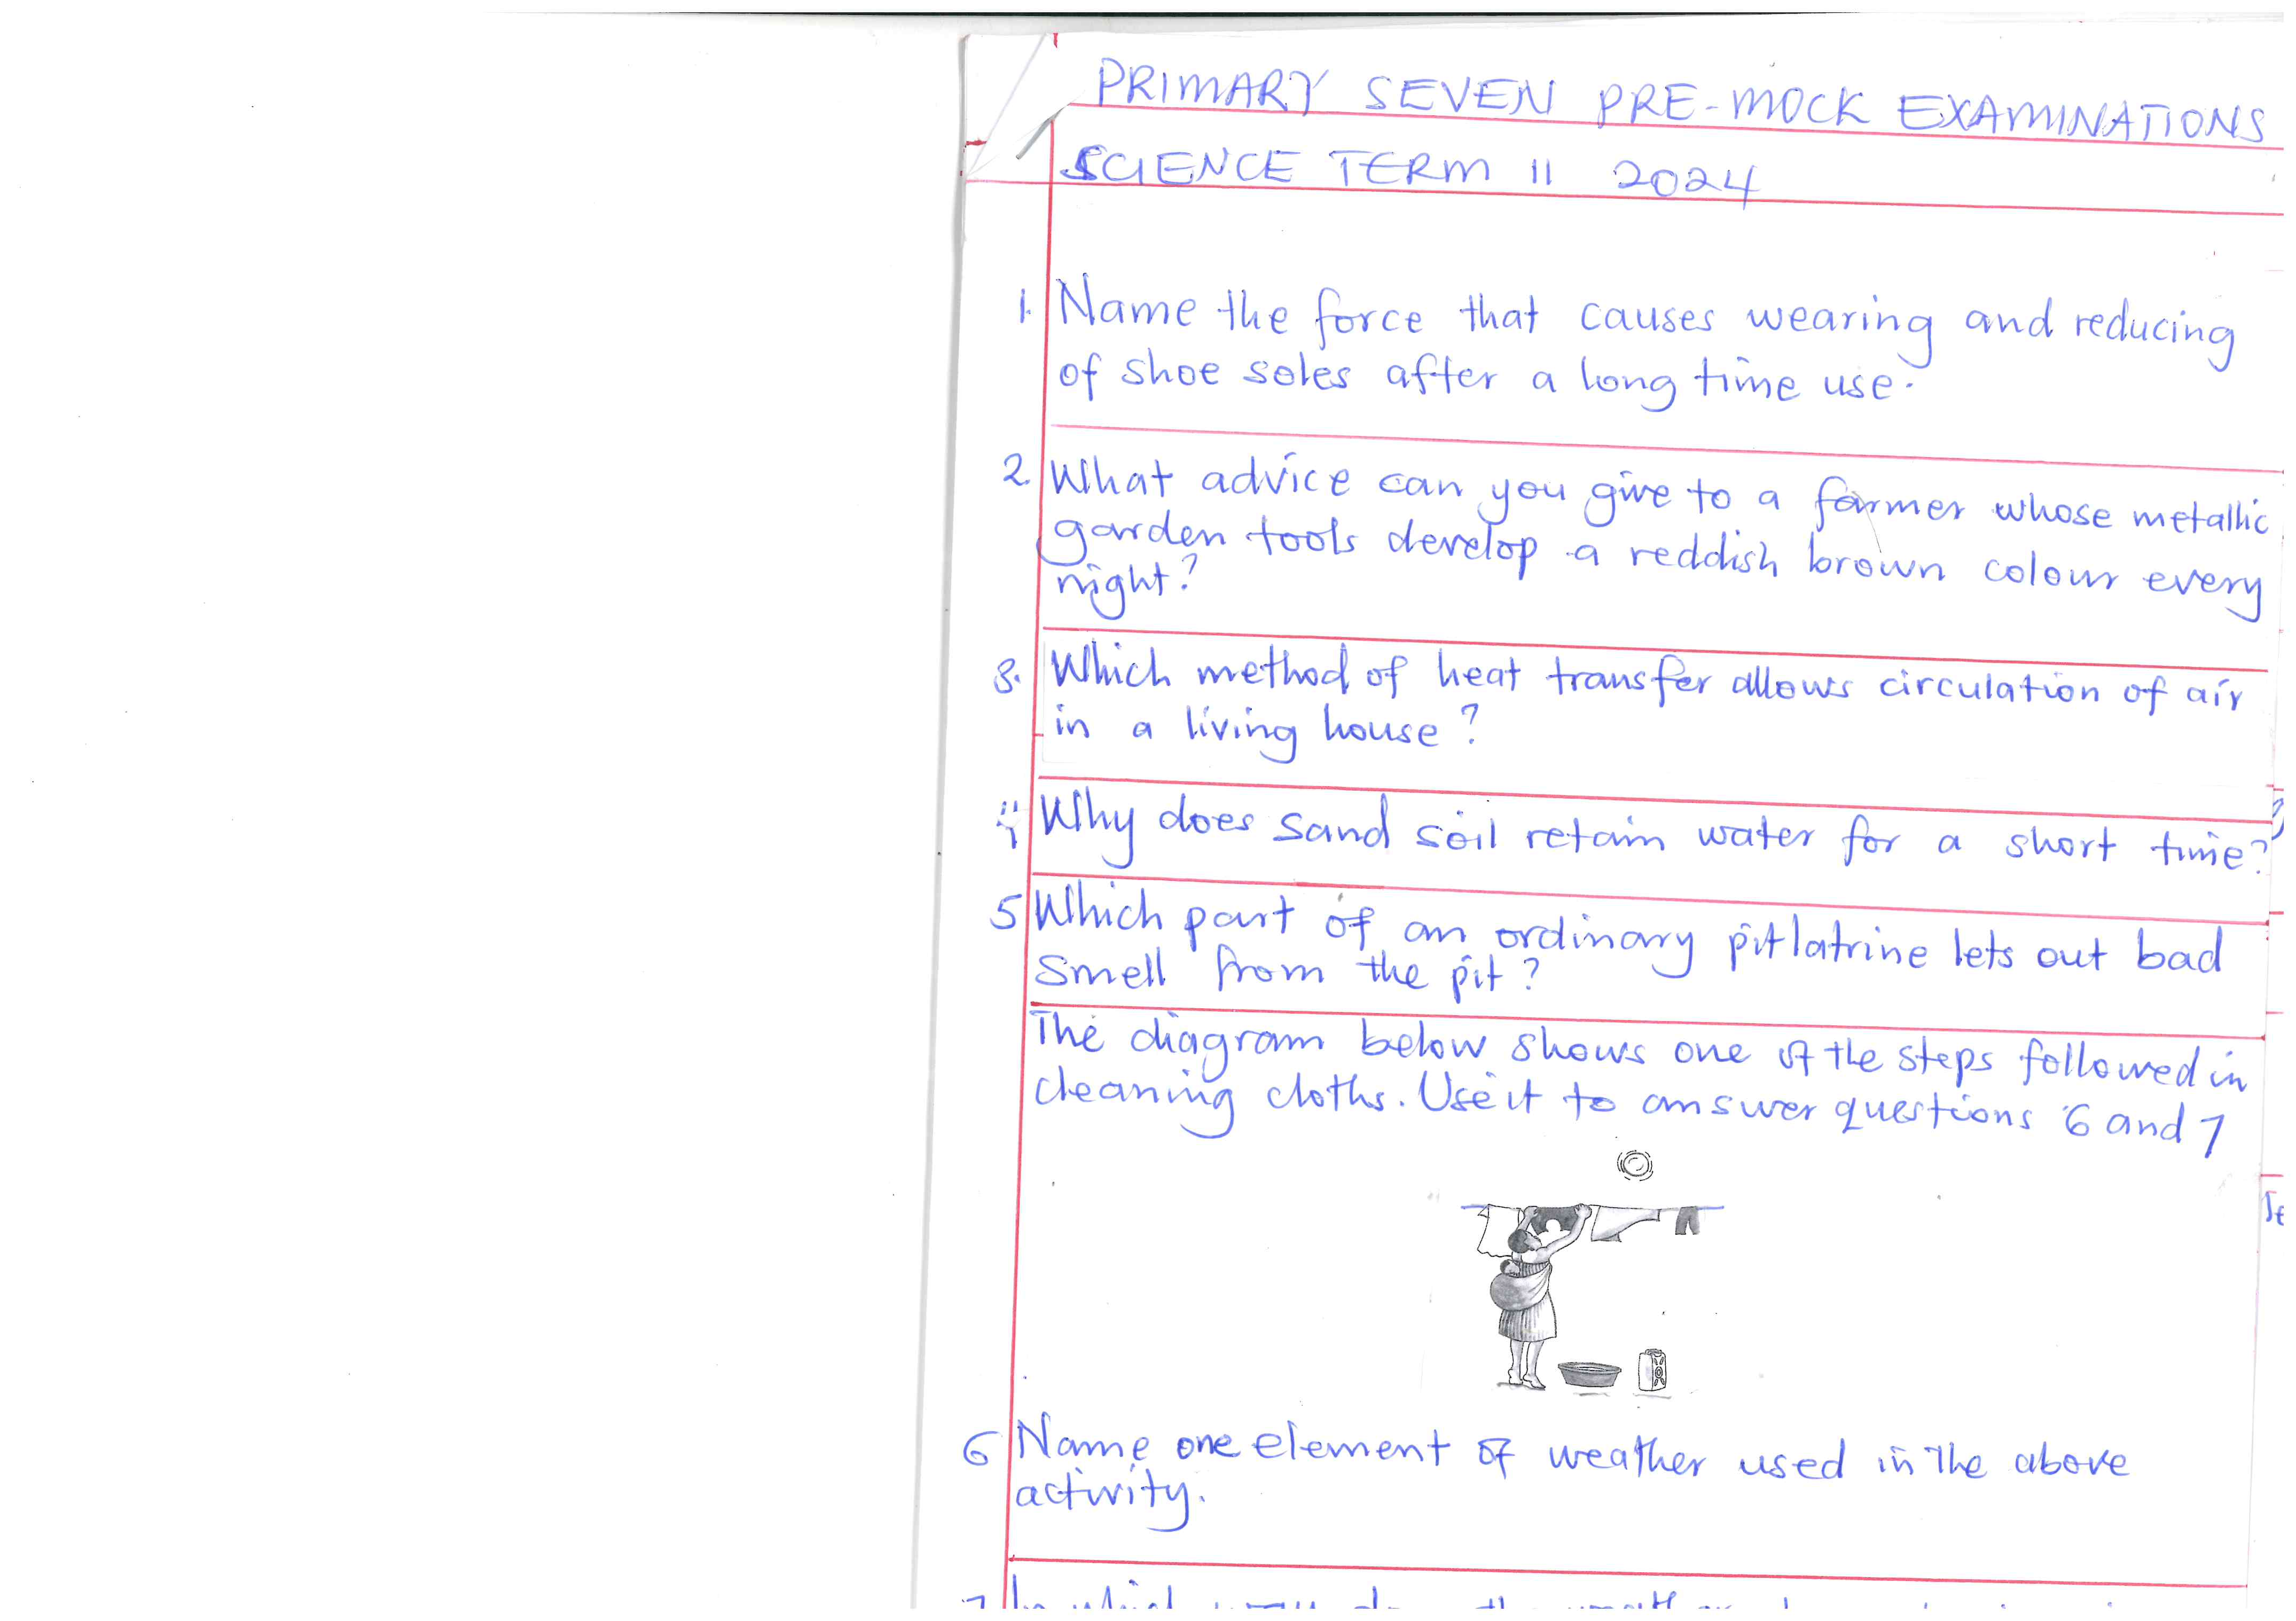 PRIMARY SEVEN PRE-MOCK EXAMINATIONS
SCIENCE TERM II 2024
1. Name the force that causes wearing and reducing
of shoe soles after a long time use.
2. What advice can you give to a farmer whose metallic
garden tools develop a reddish brown colour every
night?
3. Which method of heat transfer allows circulation of air
in a living house?
4 Why does sand soil retain water for a short time?
5 Which part of an ordinary pit latrine lets out bad
smell from the pit?
The diagram below shows one of the steps followed in
cleaning cloths. Use it to answer questions 6 and 7
6 Name one element of weather used in the above
activity.